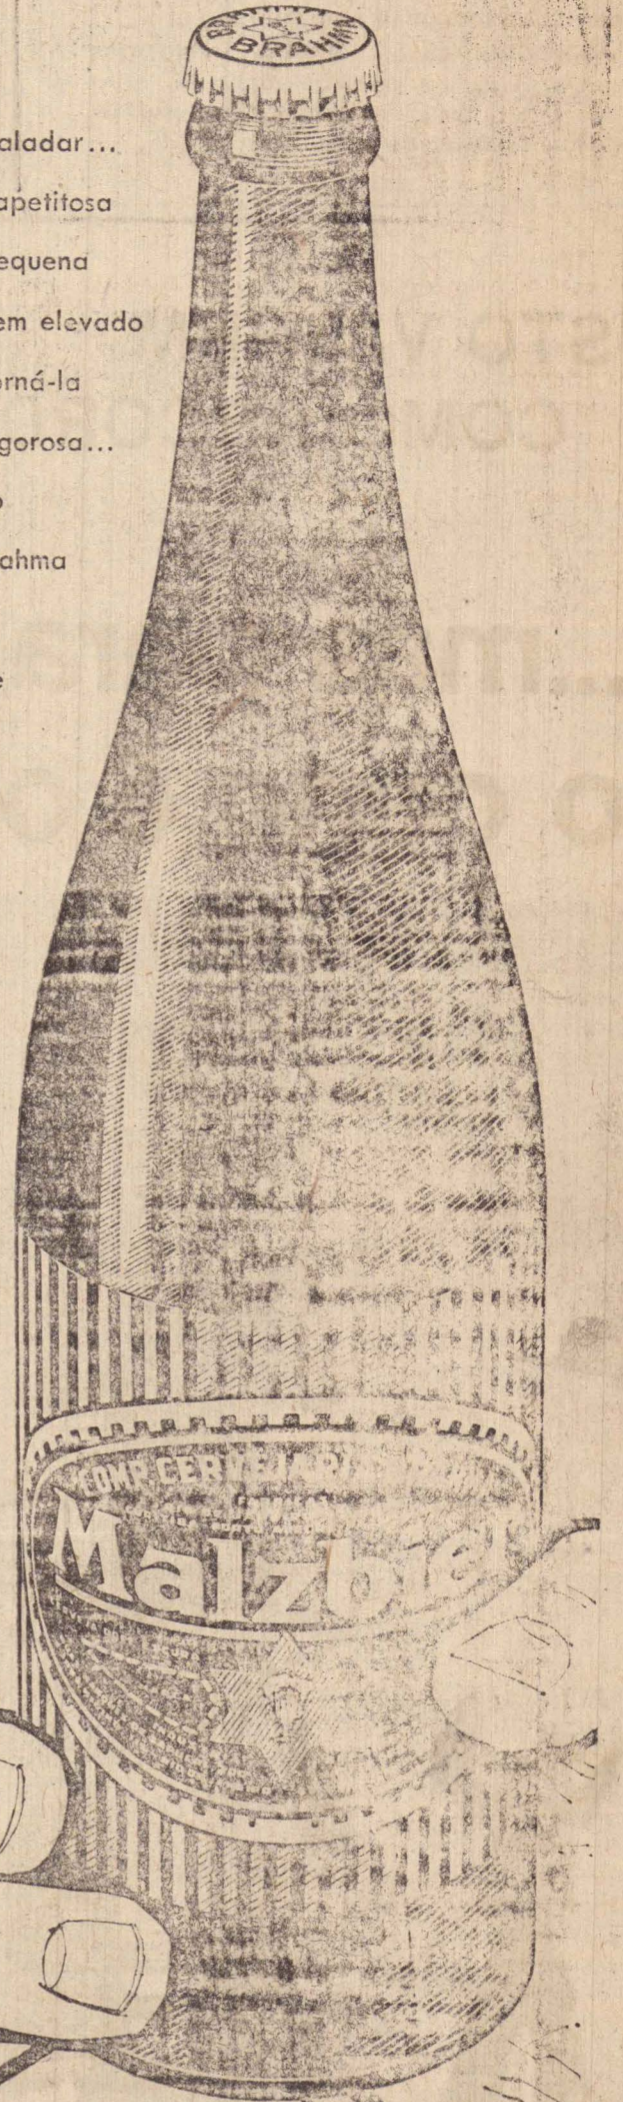 BRAHMA
BRAHMA
aladar...
apetitosa
equena
em elevado
orná-la
gorosa...
o
ahma
e
COMP. CERVEJARIA
Malzbier